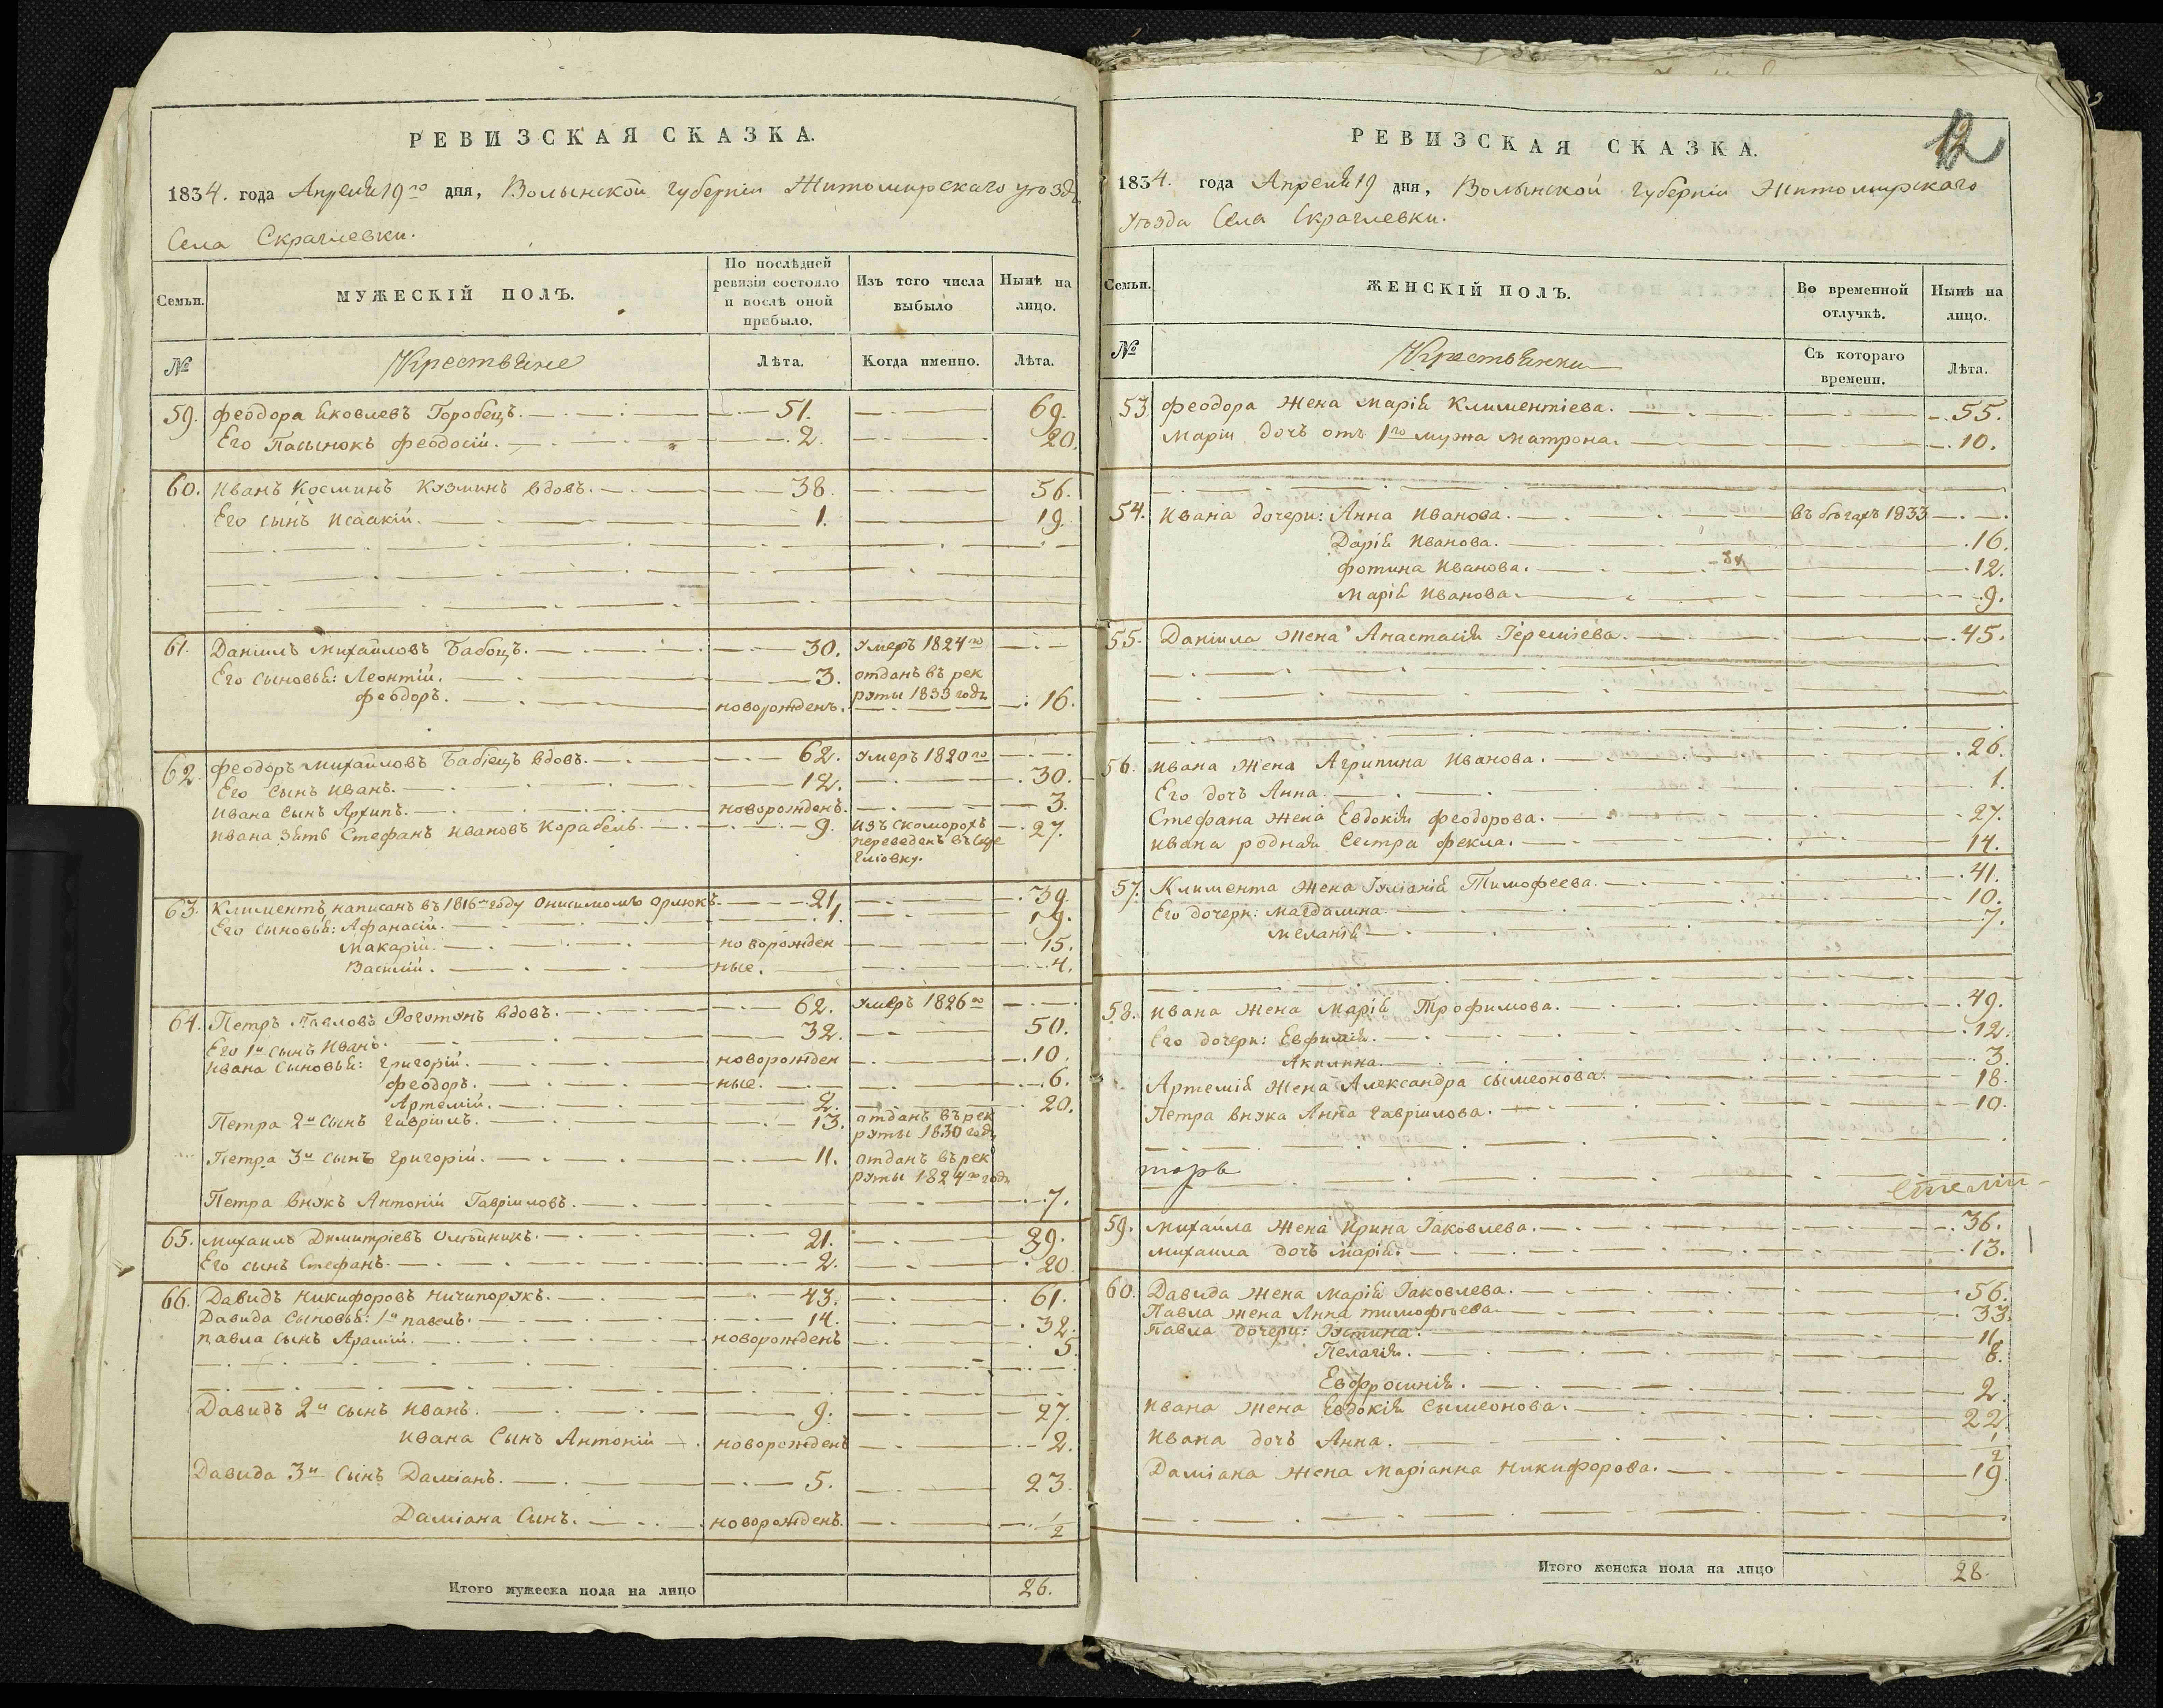 РЕВИЗСКАЯ СКАЗКА.
1834. года Апреля 19го дня, Волынской Губерніи Житомирскаго уезда
Села Скраглевки.
Семьи. МУЖЕСКІЙ ПОЛЪ. По послѣдней ревизіи состояло и послѣ оной прибыло. Изъ того числа выбыло Нынѣ на лицо.
№ Крестьяне Лѣта. Когда именно. Лѣта.
59. Феодора Яковлевъ Горобецъ. 51. 69.
Его Пасынокъ Феодосій. 2. 20.
60. Иванъ Косминъ Кузминъ вдовъ. 38. 56.
Его сынъ Исаакій. 1. 19.
61. Даніилъ Михайловъ Бабецъ. 30. умеръ 1824го
Его сыновья: Леонтій. 3. отданъ въ рек
руты 1833 годъ
Феодоръ. новорожденъ. 16.
62. Феодоръ Михайловъ Бабіецъ вдовъ. 62. умеръ 1820го
Его сынъ Иванъ. 12. 30.
Ивана сынъ Архипъ. новорожденъ. 3.
Ивана зять Стефанъ Ивановъ Корабель. 9. изъ Скоморохъ 27.
переведенъ въ Скре
глювку.
63. Климентъ, написанъ въ 1816мъ году Онисимомъ Орлюкъ. 21. 39.
Его сыновья: Афанасій. 1. 19.
Макарій. новорожден 15.
Василій. ные. 4.
64. Петръ Павловъ Роготунъ вдовъ. 62. умеръ 1826го
Его 1й сынъ Иванъ. 32. 50.
Ивана сыновья: Григорій. новорожден 10.
Феодоръ. ные. 6.
Артемій. 2. 20.
Петра 2й сынъ Гавріилъ. 13. отданъ въ рек
руты 1830 годъ
Петра 3й сынъ Григорій. 11. отданъ въ рек
руты 1824го годъ
Петра внукъ Антоній Гавріиловъ. 7.
65. Михаилъ Димитріевъ Олѣйникъ. 21. 39.
Его сынъ Стефанъ. 2. 20
66. Давидъ Никифоровъ Ничипорукъ. 43. 61.
Давида сыновья: 1й Павелъ. 14. 32.
Павла сынъ новорожденъ 5
Давидъ 2й сынъ Иванъ. 9. 27.
Ивана Сынъ Антоній новорожденъ 2.
Давида 3й Сынъ Даміанъ. 5. 23.
Даміана Сынъ. новорожденъ. 1/2
Итого мужеска пола на лицо 26.
12
РЕВИЗСКАЯ СКАЗКА.
1834. года Апреля 19 дня, Волынской Губерніи Житомирскаго
Уѣзда Села Скраглевки.
Семьи. ЖЕНСКІЙ ПОЛЪ. Во временной отлучкѣ. Нынѣ на лицо.
№ Крестьянки Съ котораго времени. Лѣта.
53 Феодора жена Марія Климентіева. 55.
Маріи дочъ отъ 1го мужа Матрона. 10.
54. Ивана дочери: Анна Иванова. въ бѣгахъ 1833
Дарія Иванова. 16.
Фотина Иванова. 12.
Марія Иванова. 9.
55. Даніила жена Анастасія Іеремієва. 45.
56. Ивана жена Агрипина Иванова. 26.
Его дочъ Анна. 1.
Стефана жена Евдокія Феодорова. 27.
Ивана родная Сестра Фекла. 14.
57. Климента жена Іуліанія Тимофеева. 41.
Его дочери: Магдалина. 10.
Меланія 7.
58. Ивана жена Марія Трофимова. 49.
Его дочери: Евфимія. 12.
Акилина. 3.
Артемія жена Александра Сымеонова. 18.
Петра внука Анна Гавріилова. 10.
59. Михаила жена Ирина Іаковлева. 36.
Михаила дочъ Марія. 13.
60. Давида жена Марія Іаковлева. 56.
Павла жена Анна Тимофѣева. 33.
Павла дочери: Іустина. 11.
Пелагія. 8.
Евфросинія. 2.
Ивана жена Евдокія Сымеонова. 22.
Ивана дочъ Анна. 1/2
Даміана жена Маріанна Никифорова. 19.
Итого женска пола на лицо 28.